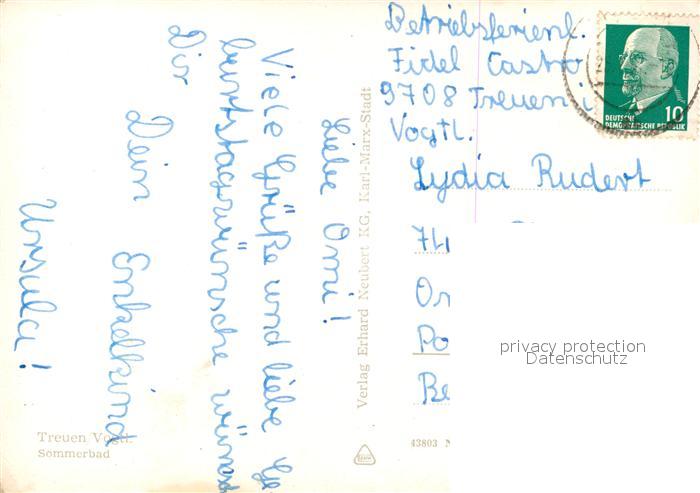 Liebe Omi!
Viele Grüße und liebe Ge
burtstagswünsche wünscht
Dir
Dein Enkelkind
Ursula!
Treuen Vogtl.
Sommerbad
Verlag Erhard Neubert KG, Karl-Marx-Stadt
43803
Betriebsferienl.
Fidel Castro
9708 Treuen i
Vogtl.
Lydia Rudert
Or
Po
Be
DEUTSCHE
DEMOKRATISCHE REPUBLIK
10
privacy protection
Datenschutz